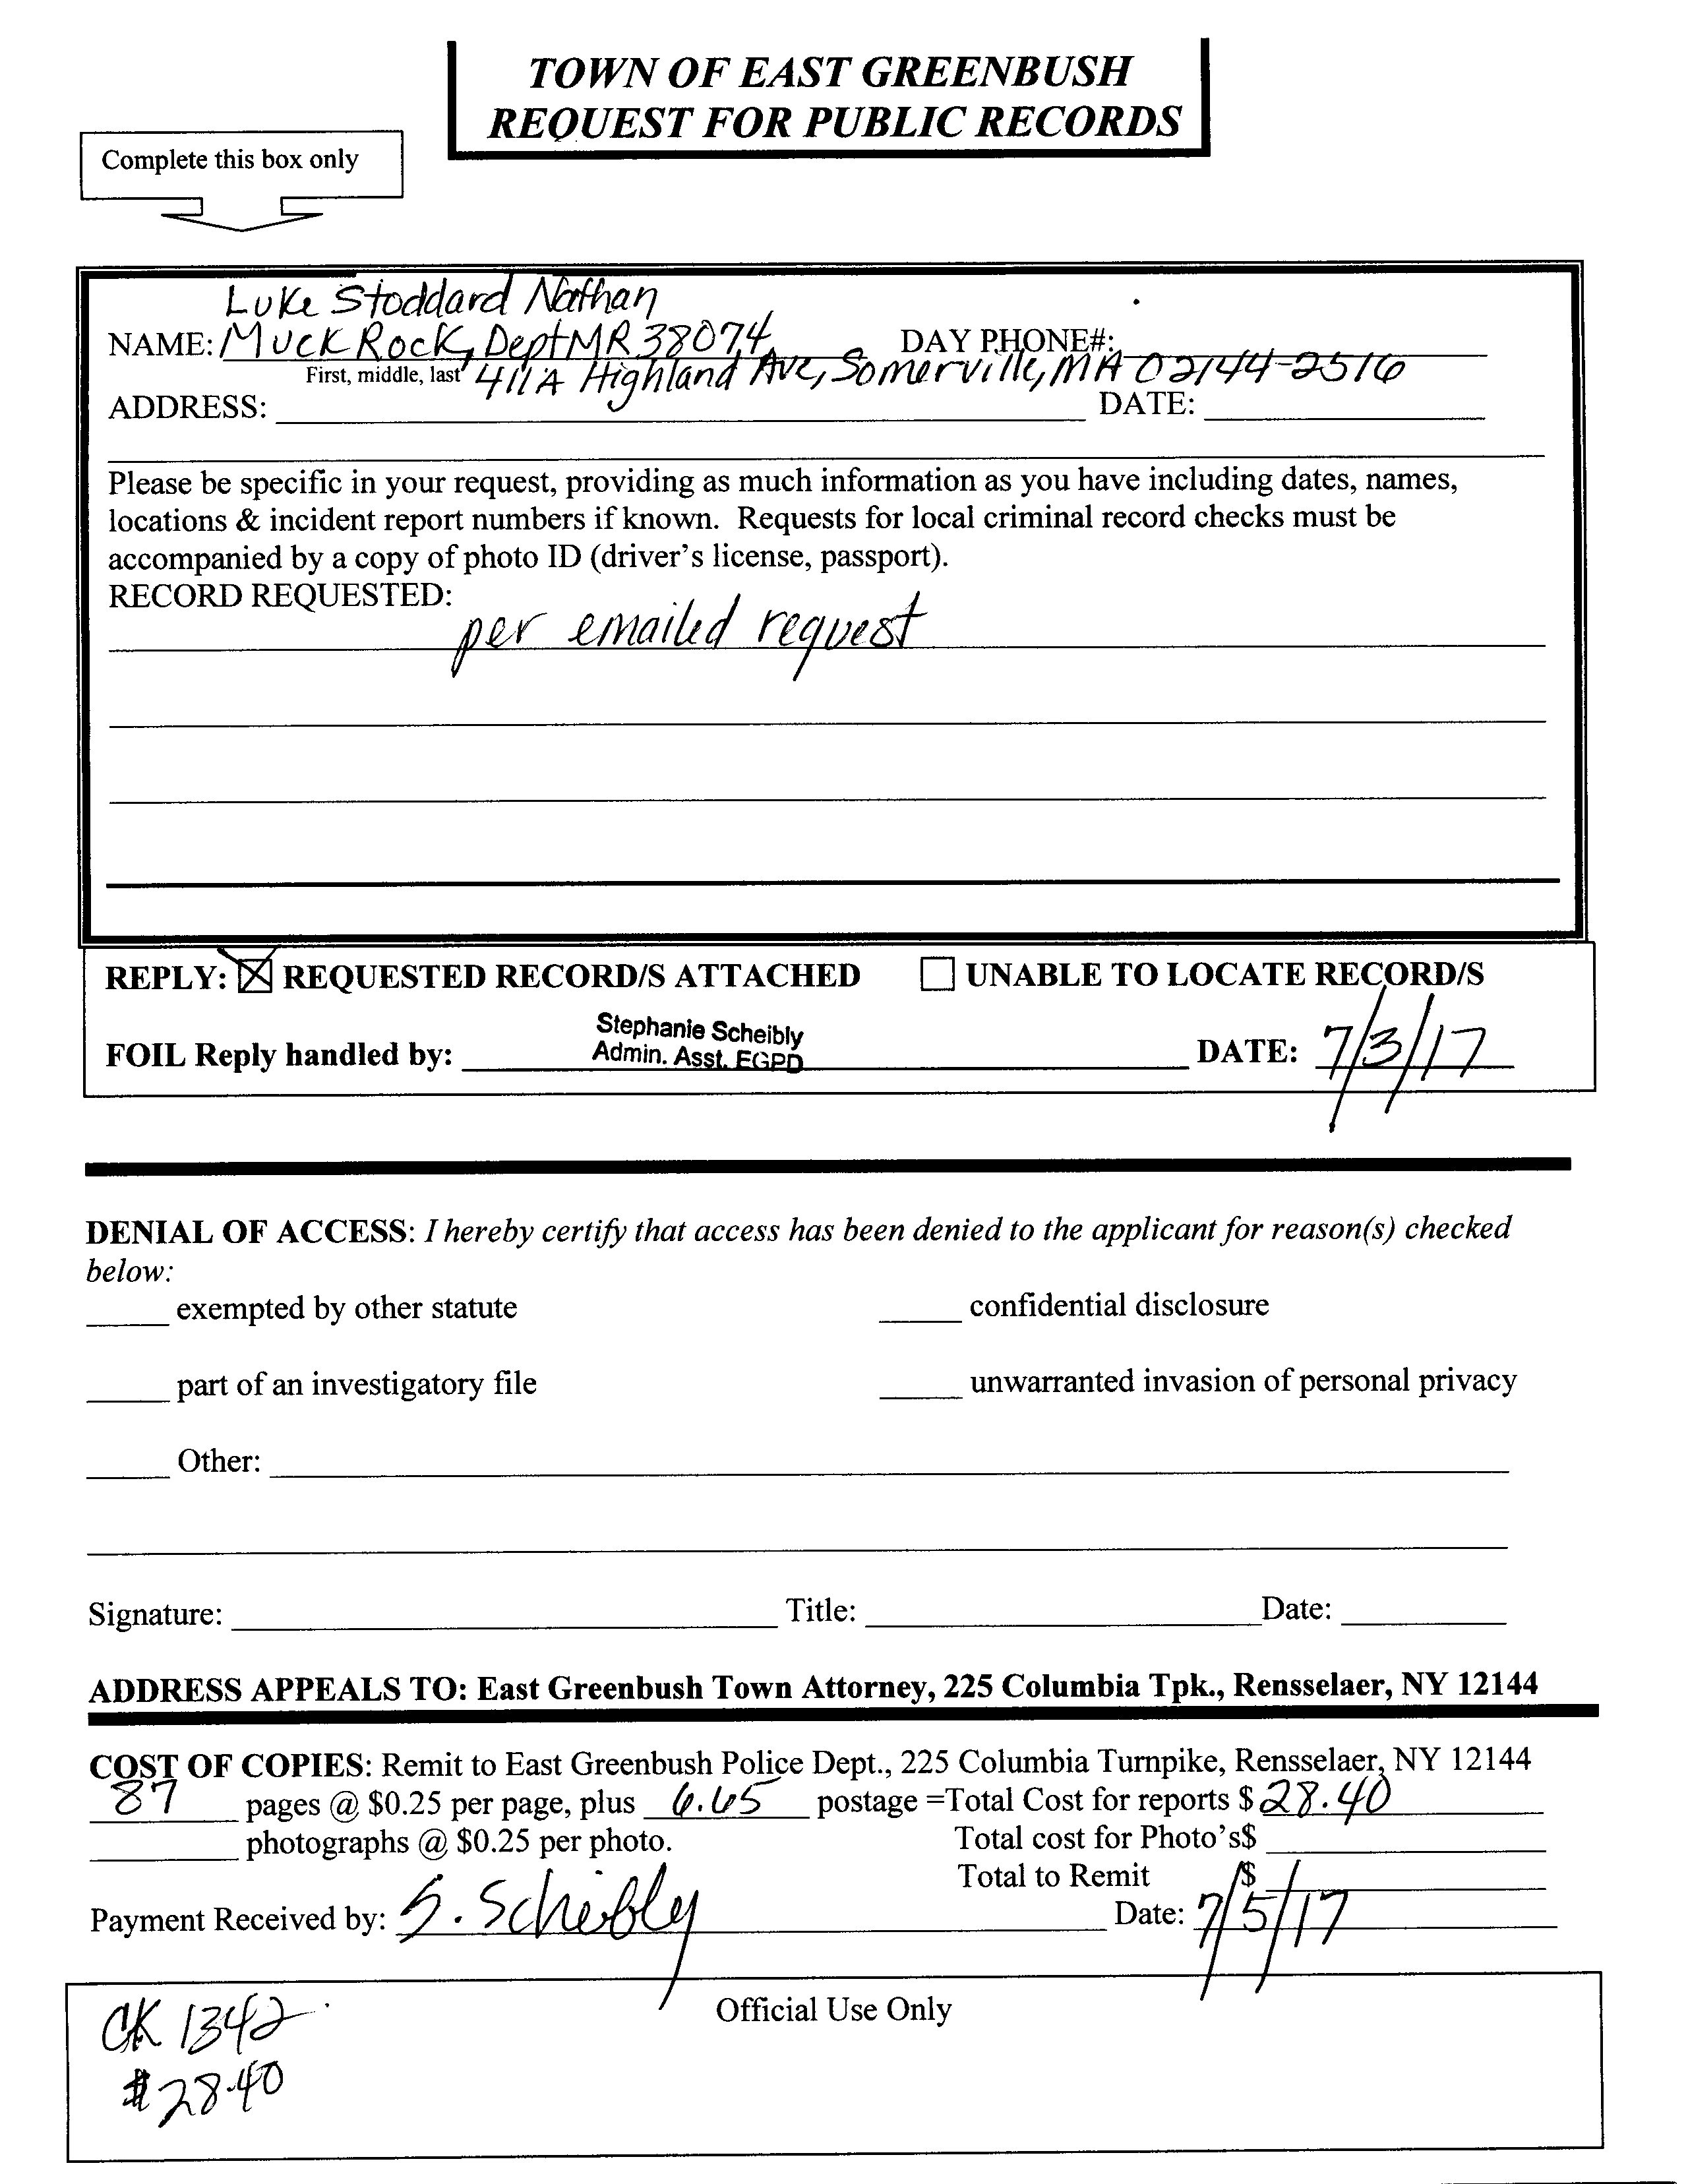 TOWN OF EAST GREENBUSH
REQUEST FOR PUBLIC RECORDS
Complete this box only
Luke Stoddard Nathan
NAME: MuckRock, Dept MR 38074 DAY PHONE#:
First, middle, last 411A Highland Ave, Somerville, MA 02144-2516
ADDRESS: DATE:
Please be specific in your request, providing as much information as you have including dates, names,
locations & incident report numbers if known. Requests for local criminal record checks must be
accompanied by a copy of photo ID (driver's license, passport).
RECORD REQUESTED:
per emailed request
REPLY: ☒ REQUESTED RECORD/S ATTACHED ☐ UNABLE TO LOCATE RECORD/S
Stephanie Scheibly
FOIL Reply handled by: Admin. Asst. EGPD DATE: 7/3/17
DENIAL OF ACCESS: I hereby certify that access has been denied to the applicant for reason(s) checked
below:
exempted by other statute confidential disclosure
part of an investigatory file unwarranted invasion of personal privacy
Other:
Signature: Title: Date:
ADDRESS APPEALS TO: East Greenbush Town Attorney, 225 Columbia Tpk., Rensselaer, NY 12144
COST OF COPIES: Remit to East Greenbush Police Dept., 225 Columbia Turnpike, Rensselaer, NY 12144
87 pages @ $0.25 per page, plus 6.65 postage =Total Cost for reports $ 28.40
photographs @ $0.25 per photo. Total cost for Photo's$
Total to Remit $
Payment Received by: S. Scheibly Date: 7/5/17
Official Use Only
CK 1342
$28.40